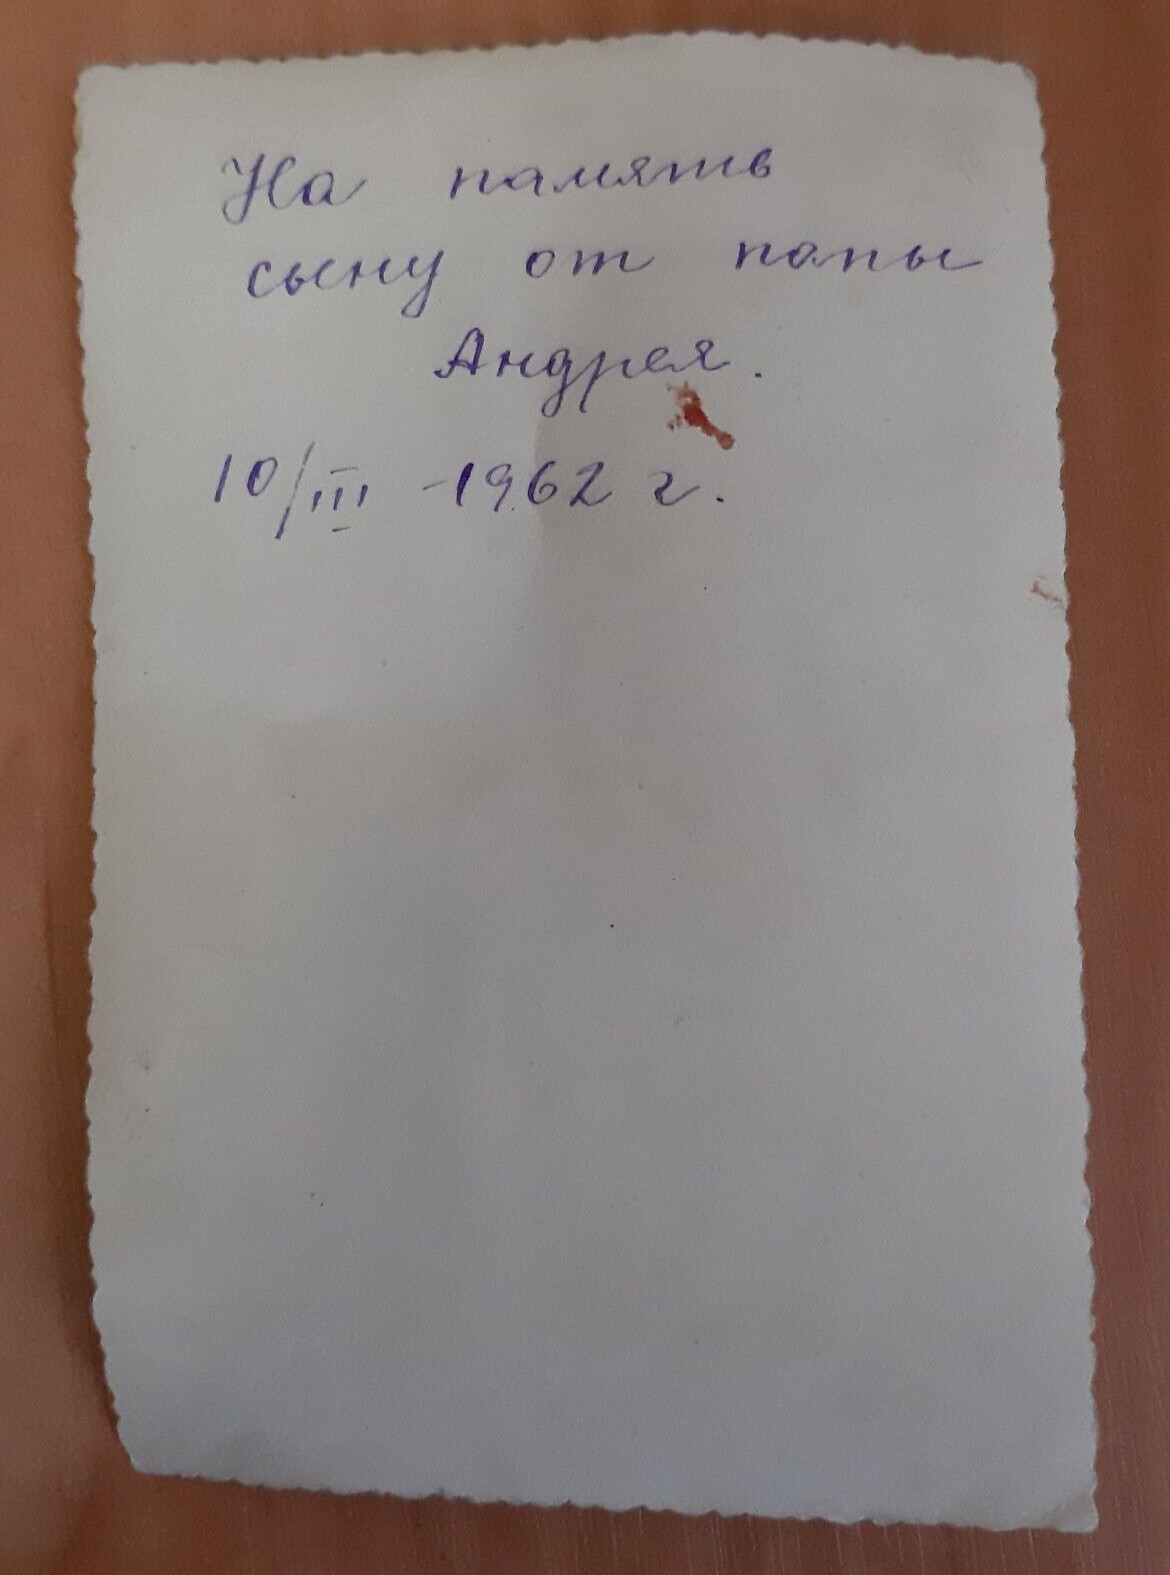 На память
сыну от папы
Андрея.
10/III -1962 г.